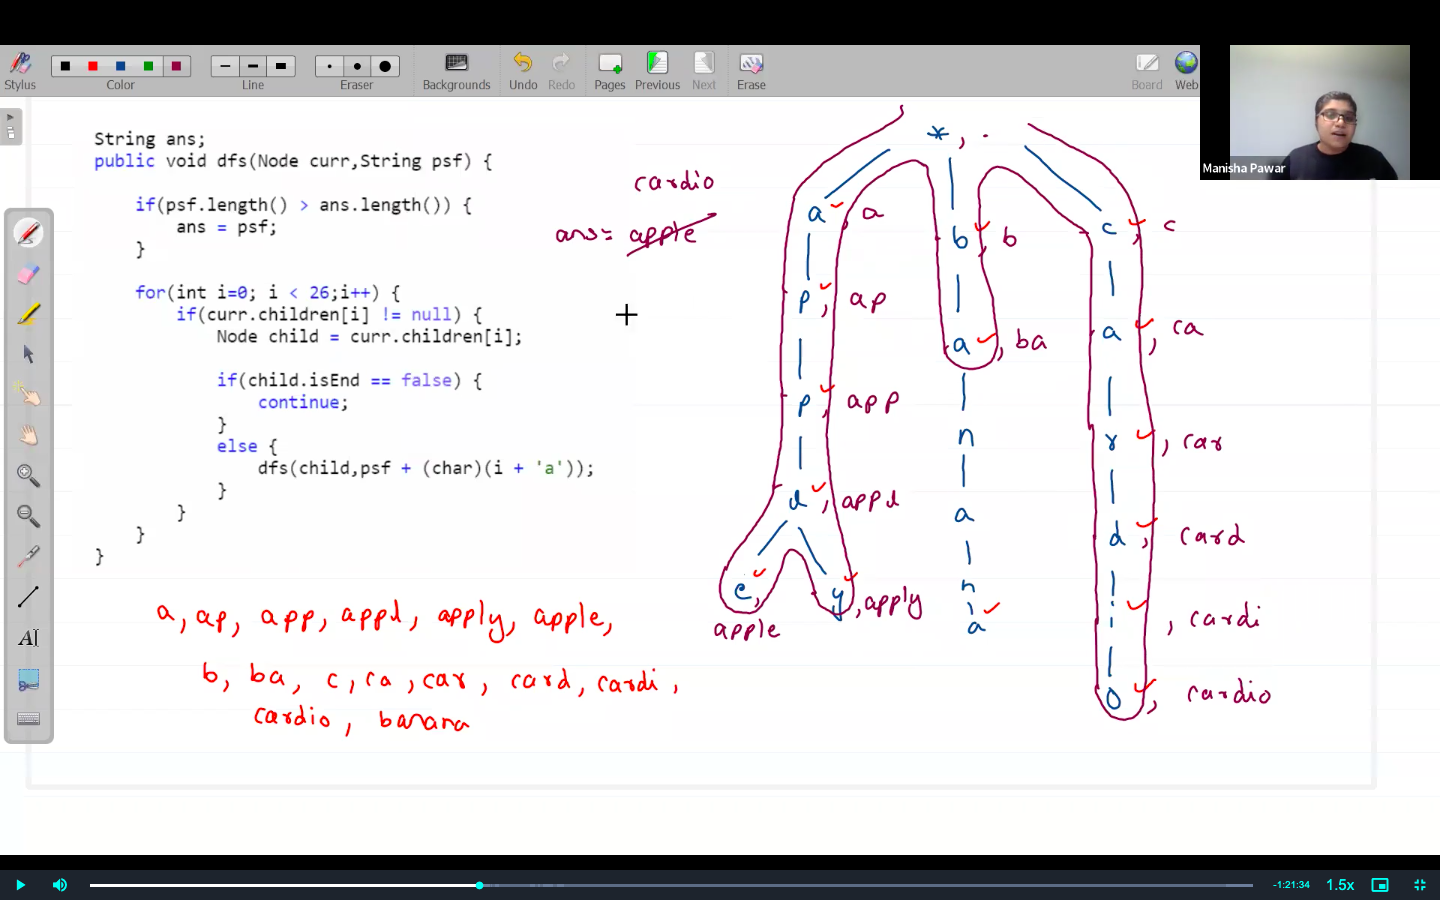 Stylus
Color
Line
Eraser
Backgrounds
Undo
Redo
Pages
Previous
Next
Erase
Board
Web
Manisha Pawar
String ans;
public void dfs(Node curr,String psf) {
if(psf.length() > ans.length()) {
ans = psf;
}
for(int i=0; i < 26;i++) {
if(curr.children[i] != null) {
Node child = curr.children[i];
if(child.isEnd == false) {
continue;
}
else {
dfs(child,psf + (char)(i + 'a'));
}
}
}
}
cardio
ans= apple
a, ap, app, appl, apply, apple,
b, ba, c, ca, car, card, cardi,
cardio, banana
*, .
a, a
p, ap
p, app
l, appl
e, apple
y, apply
b b
a, ba
n
a
n
a
c, c
a, ca
r, car
d, card
i, cardi
o, cardio
AI
-1:21:34
1.5x